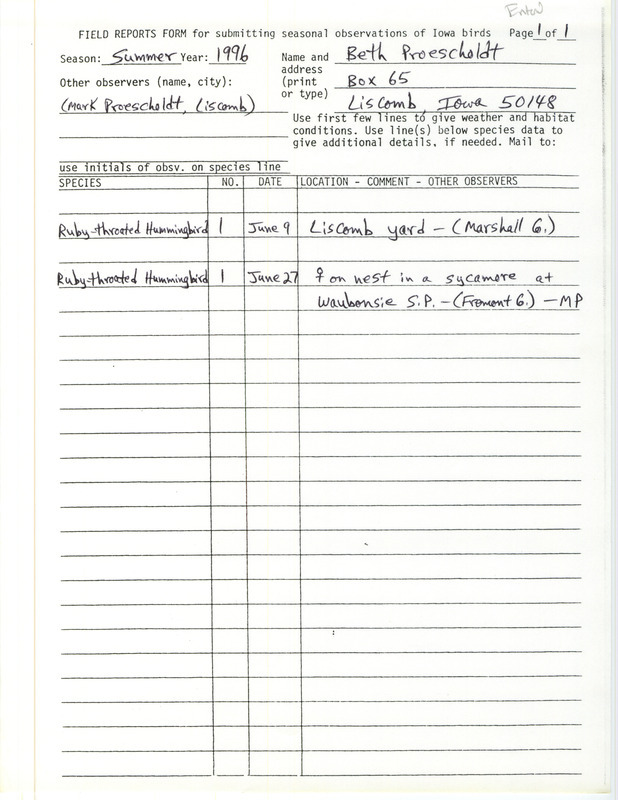 Enter
FIELD REPORTS FORM for submitting seasonal observations of Iowa birds Page 1 of 1
Season: Summer Year: 1996 Name and Beth Proescholdt
address
Other observers (name, city): (print Box 65
or type)
(Mark Proescholdt, Liscomb) Liscomb, Iowa 50148
Use first few lines to give weather and habitat
conditions. Use line(s) below species data to
give additional details, if needed. Mail to:
use initials of obsv. on species line
SPECIES NO. DATE LOCATION - COMMENT - OTHER OBSERVERS
Ruby-throated Hummingbird 1 June 9 Liscomb yard - (Marshall G.)
Ruby-throated Hummingbird 1 June 27 ♀ on nest in a sycamore at
Waubonsie S.P. - (Fremont G.) - MP